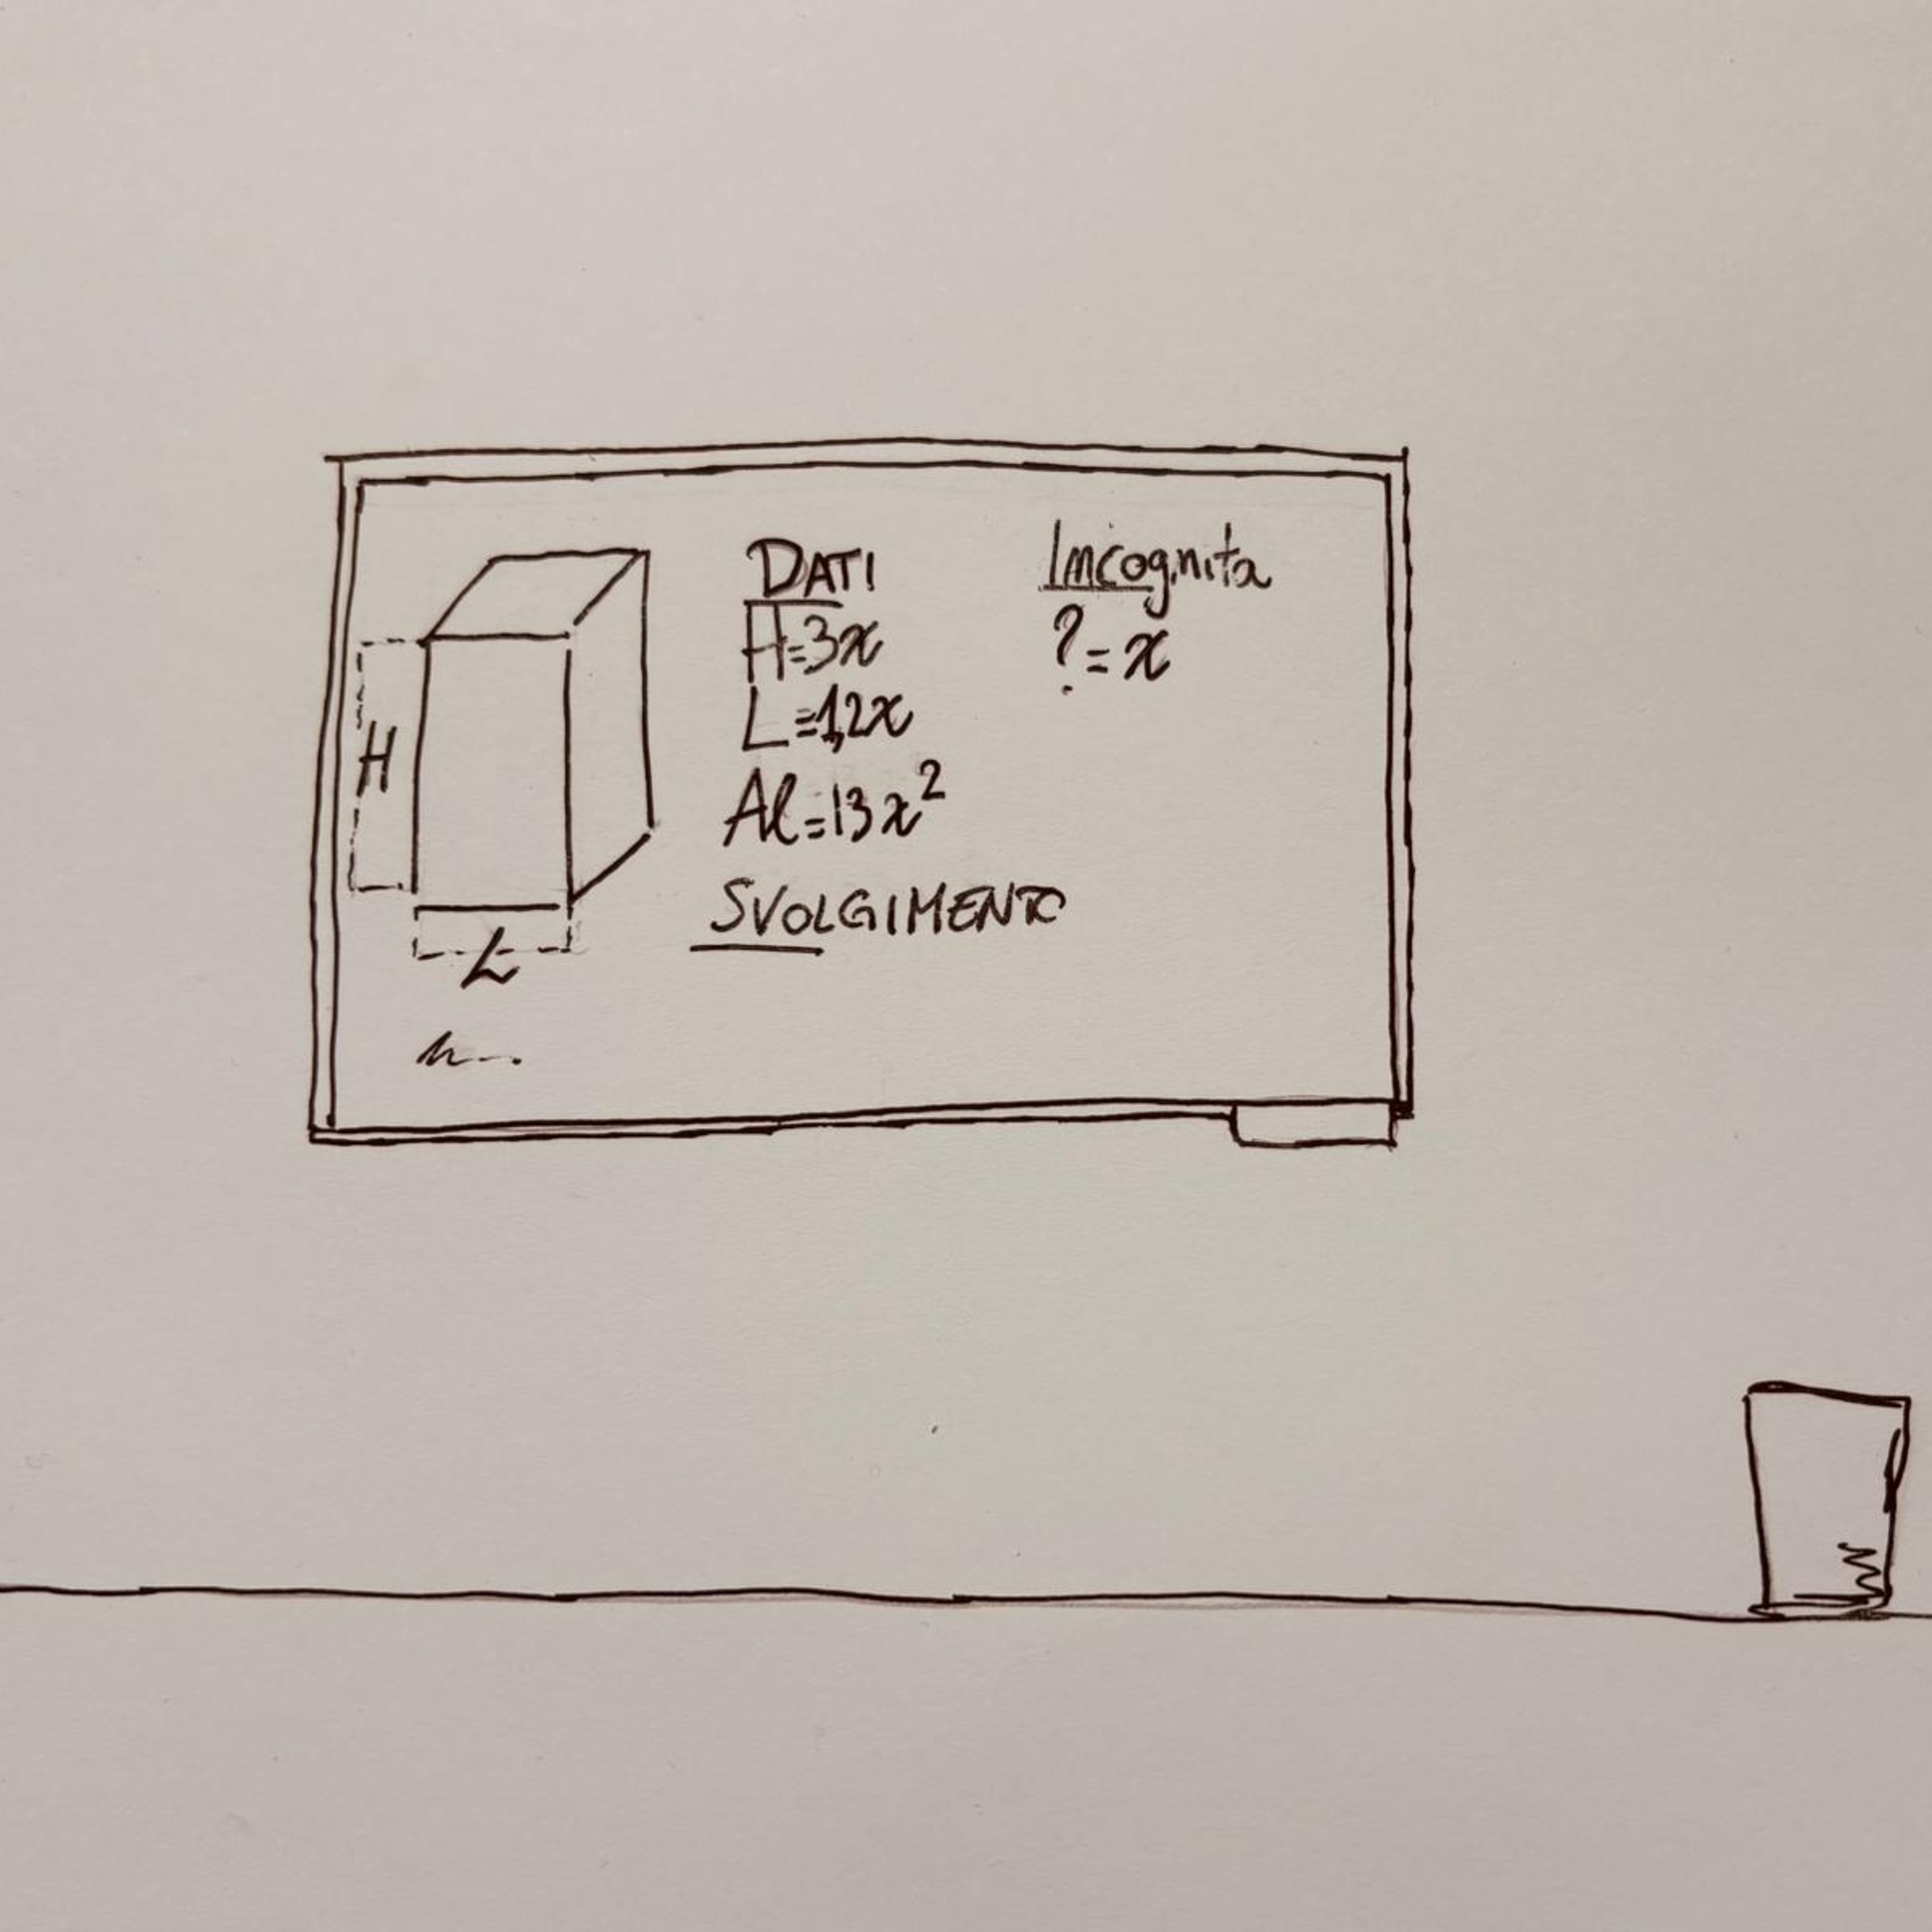 DATI
H=3x
L=1,2x
Al=13x²
SVOLGIMENTO
Incognita
?=x
H
L